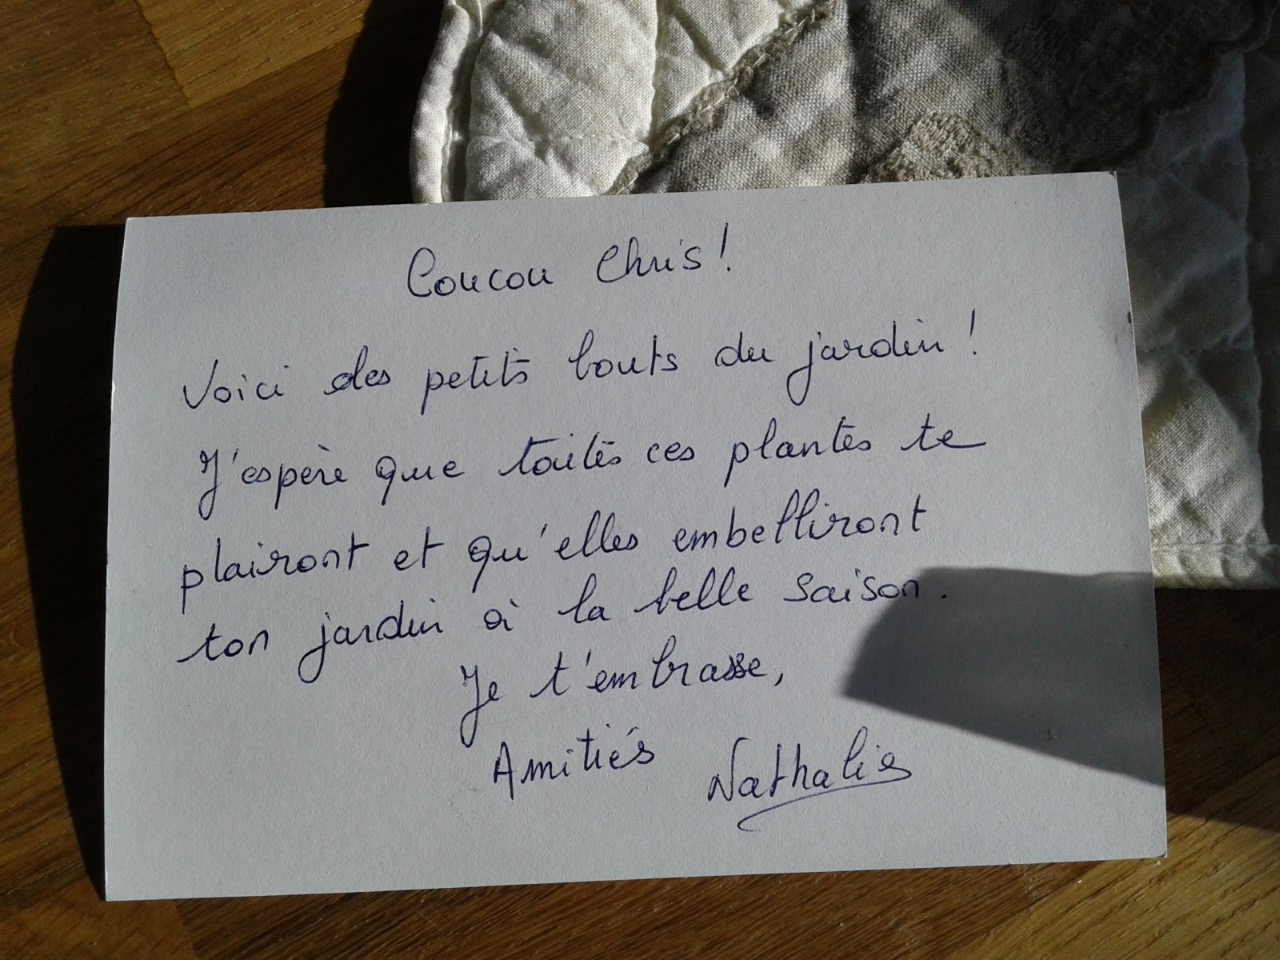 Coucou Chris !
Voici des petits bouts du jardin !
J'espère que toutes ces plantes te
plairont et qu'elles embelliront
ton jardin à la belle saison.
Je t'embrasse,
Amitiés Nathalie